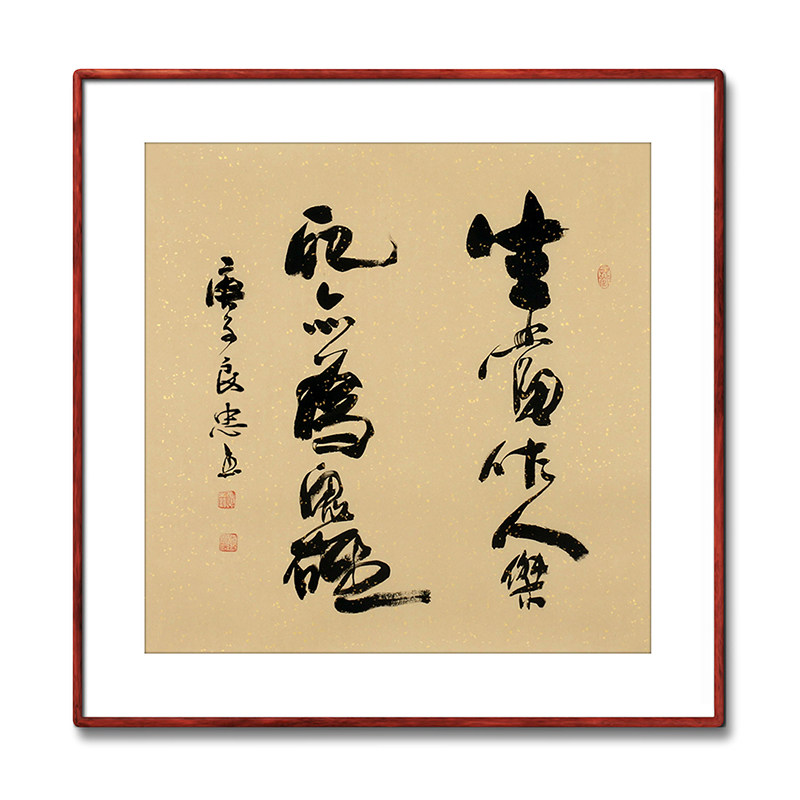 生當作人傑
死亦為鬼雄
庚子良忠书